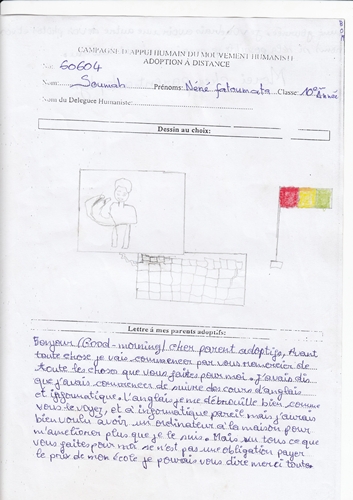 CAMPAGNE D'APPUI HUMAIN DU MOUVEMENT HUMANISTE
ADOPTION A DISTANCE
60604
Nom: Soumah Prénoms: Néné fatoumata Classe: 10e Année
Nom du Déléguée Humaniste:
Dessin au choix:
Lettre à mes parents adoptifs:
Bonjour (Good-morning) cher parent adoptifs, Avant
toute chose je vais commencer par vous remercier de
toute les choses que vous faites pour moi. J'avais dis
que j'avais commencer de suivre des cours d'anglais
et informatique. L'anglais je me débrouille bien comme
vous le voyez, et à informatique pareil mais j'aurais
bien voulu avoir un ordinateur à la maison pour
m'améliorer plus que je le suis. Mais su tous ce que
vous faites pour moi se n'est pas une obligation payer
le prix de mon école je pouvais vous dire merci toute